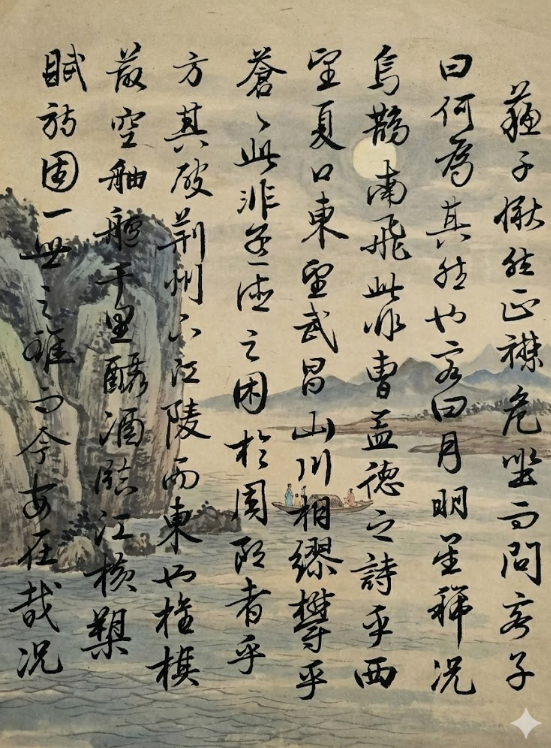 蘇子愀然正襟危坐而問客子
曰何為其然也客曰月明星稀况
烏鵲南飛此非曹孟德之詩乎西
望夏口東望武昌山川相繆鬱乎
蒼〻此非孟德之困於周郎者乎
方其破荊州下江陵而東也
空舳艫千里釃酒臨江橫槊
賦詩固一世之雄而今安在哉况